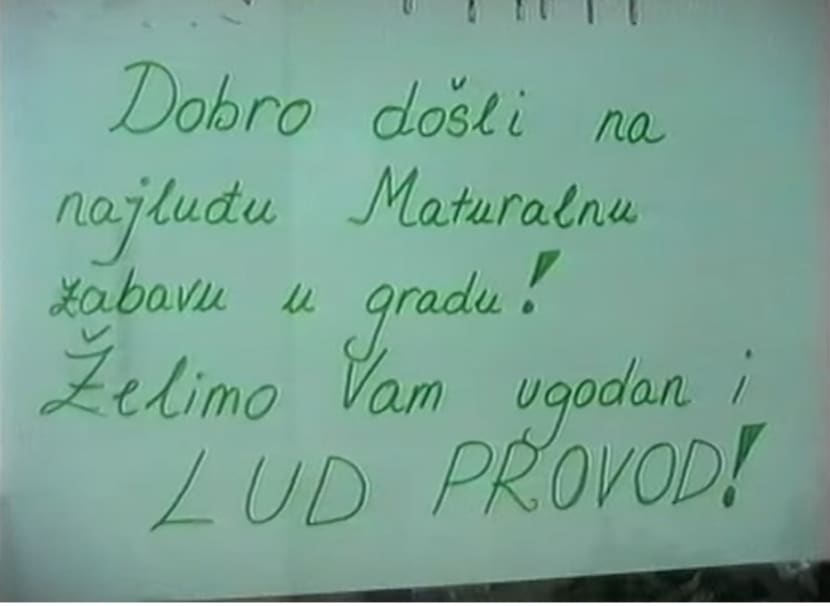 Dobro došli na
najluđu Maturalnu
zabavu u gradu!
Želimo Vam ugodan i
LUD PROVOD!